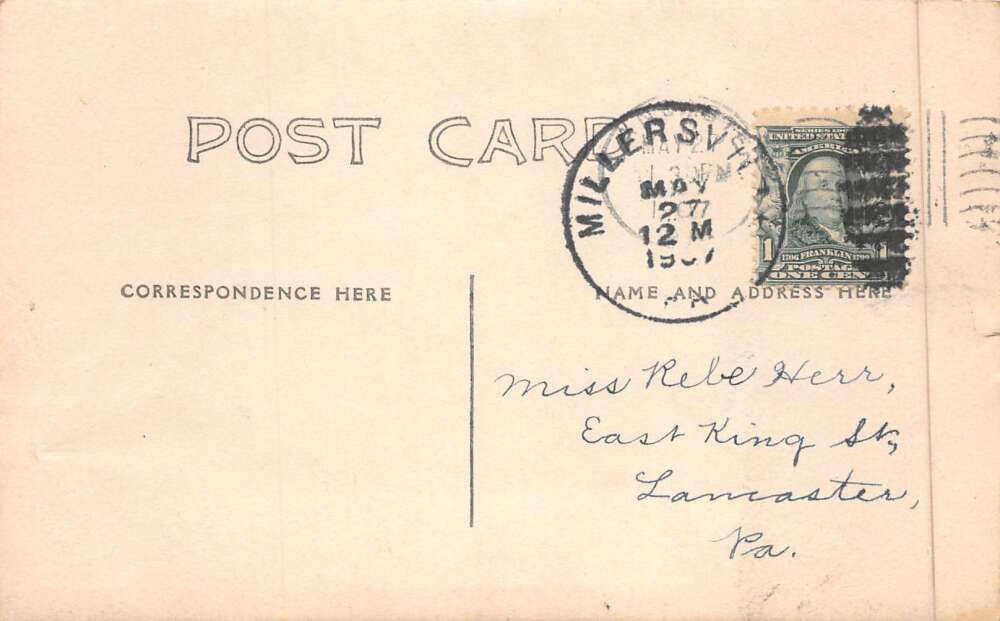 POST CARD
MILLERSVILLE
MAY
27
12 M
1907
PA
SERIES 1902
UNITED STATES
AMERICA
1 1
1706 FRANKLIN 1790
POSTAGE
ONE CENT
CORRESPONDENCE HERE
NAME AND ADDRESS HERE
Miss Rebe Herr,
East King St,
Lancaster,
Pa.